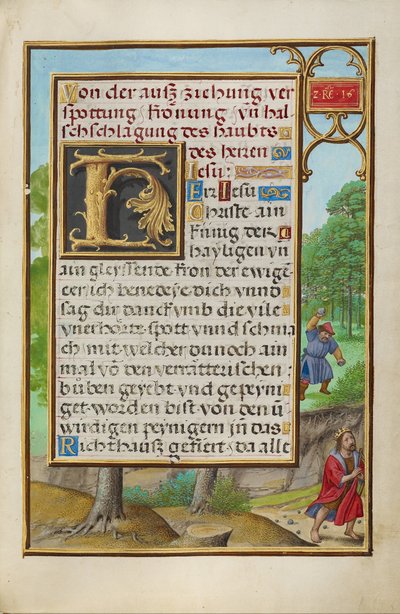 Von der ausz ziehung ver
spottung krönung vn̄ hal
schschlagung des haubts
des herren
Jesu:
HEir Jesu
Christe ain
künig der
hayligen vn̄
ain gleyssende kron der ewige͂
eer ich benedeye dich vnnd
sag dir danck vmb die vile
vnerhörte spott vnnd schma
ch mit welcher du noch ain
mal vō den verratterischen
būben geyebt vnd gepeyni
get worden bist von den ū
wirdigen peynigern in das
Richthausz gefiert, da alle
2 · RE · 16